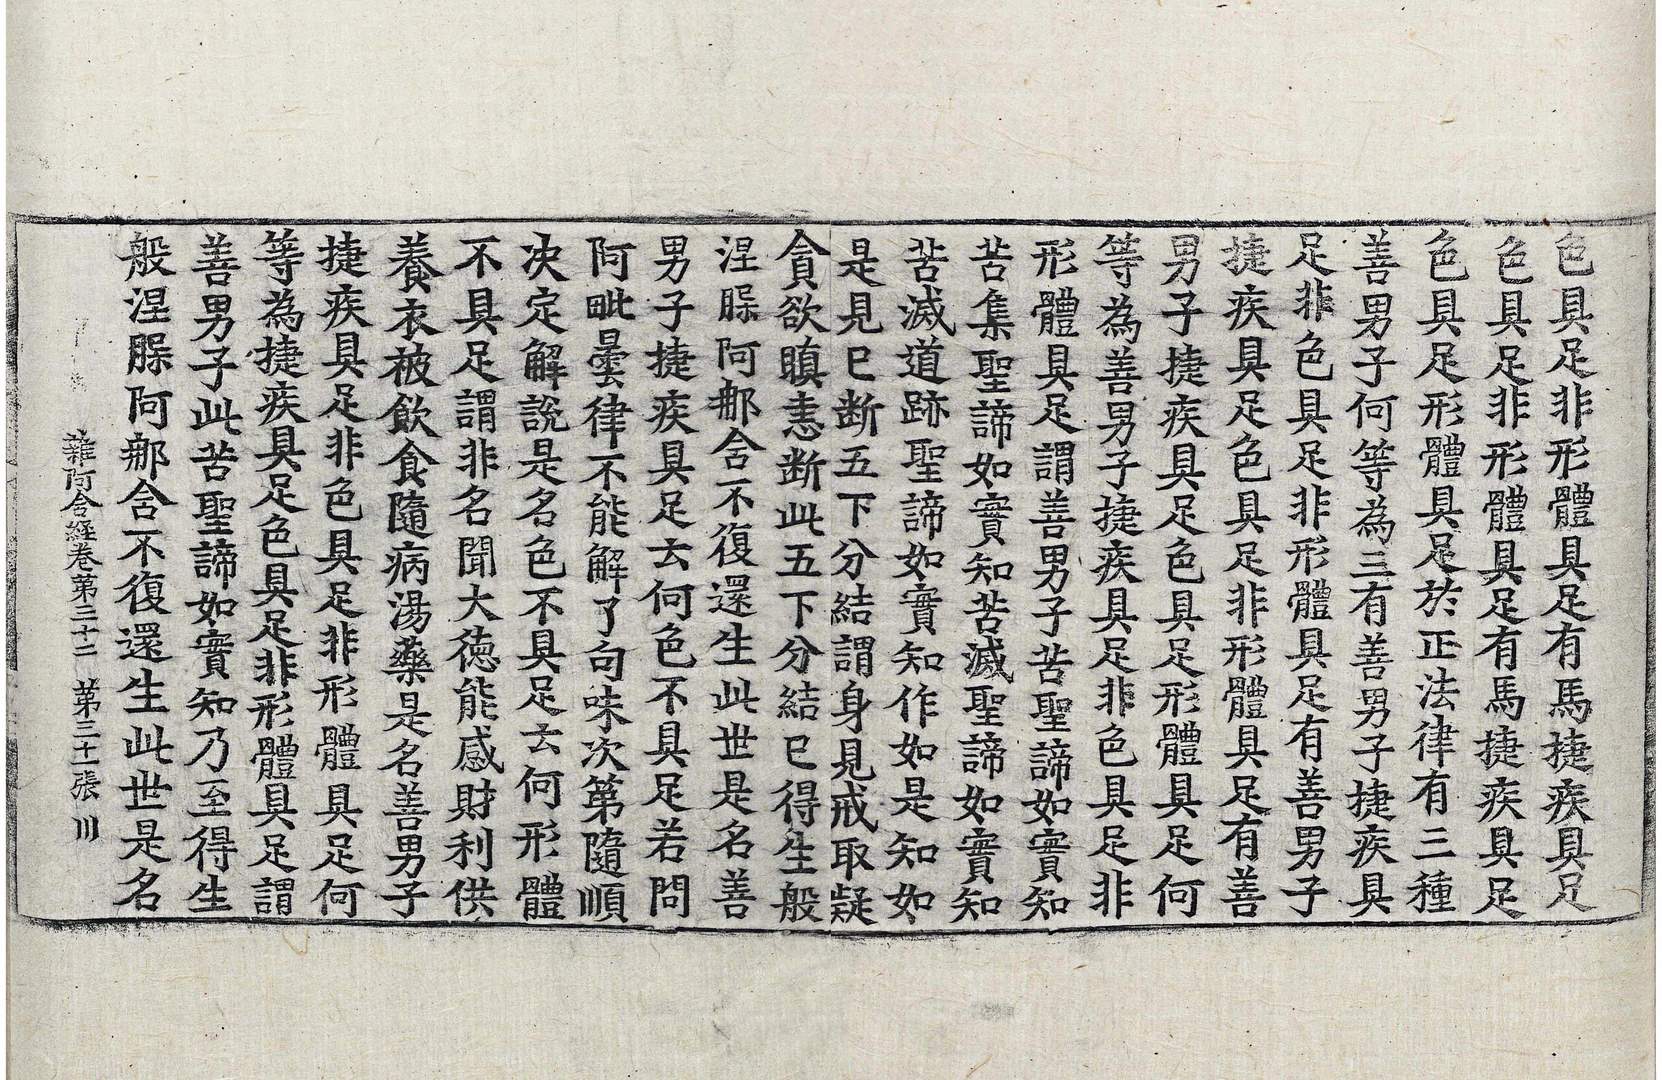 色具足非形體具足有馬捷疾具足
色具足非形體具足有馬捷疾具足
色具足形體具足於正法律有三種
善男子何等為三有善男子捷疾具
足非色具足非形體具足有善男子
捷疾具足色具足非形體具足有善
男子捷疾具足色具足形體具足何
等為善男子捷疾具足非色具足非
形體具足謂善男子苦聖諦如實知
苦集聖諦如實知苦滅聖諦如實知
苦滅道跡聖諦如實知作如是知如
是見已断五下分結謂身見戒取疑
貪欲瞋恚断此五下分結已得生般
涅脲阿那含不復還生此世是名善
男子捷疾具足云何色不具足若問
阿毗曇律不能解了句味次第隨順
决定解說是名色不具足云何形體
不具足謂非名聞大徳能感財利供
養衣被飲食隨病湯藥是名善男子
捷疾具足非色具足非形體具足何
等為捷疾具足色具足非形體具足謂
善男子此苦聖諦如實知乃至得生
般涅脲阿那含不復還生此世是名
雜阿含經卷第三十三 第三十張 川